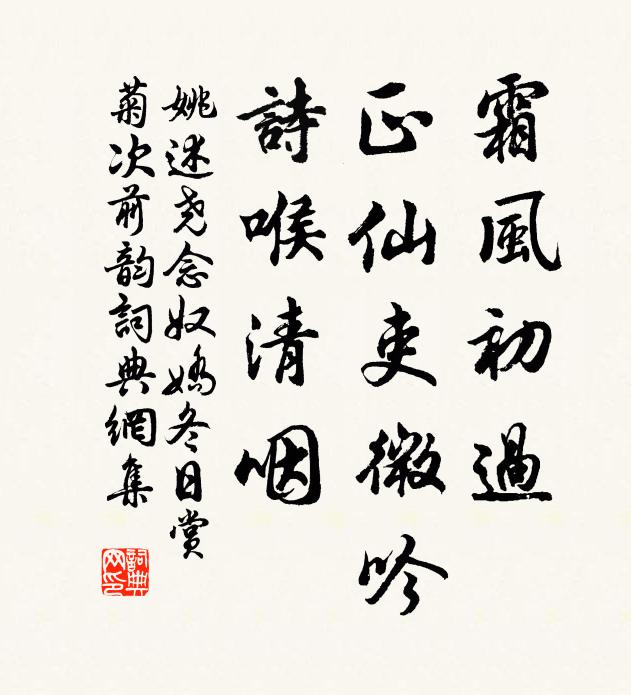 霜風初過
正仙吏微吟
詩喉清咽
姚述尧念奴嬌冬日賞
菊次前韵詞典網集
詞典網印